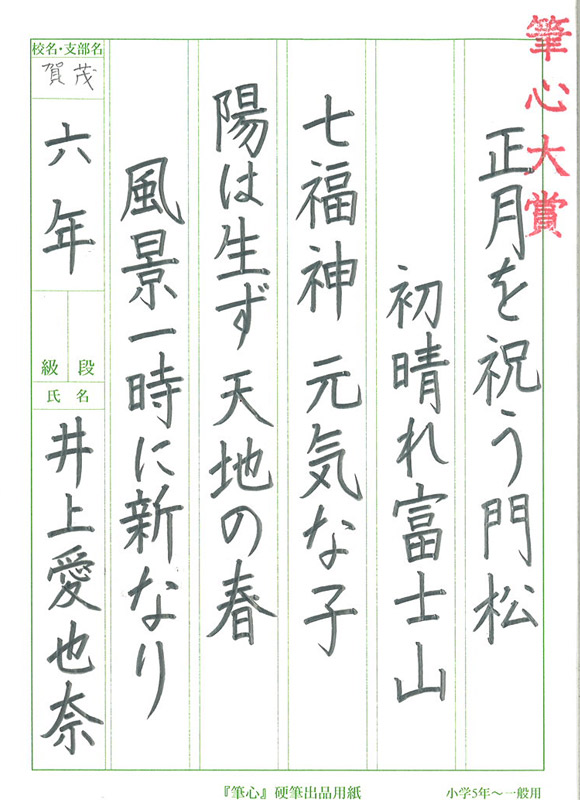 筆心大賞
正月を祝う門松
初晴れ富士山
七福神 元気な子
陽は生ず 天地の春
風景一時に新なり
校名・支部名
賀茂
六年
級 段
氏名
井上愛也奈
『筆心』硬筆出品用紙
小学5年〜一般用